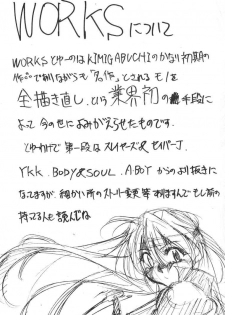 WORKSについて
WORKSとゆーのはKIMIGABUCHIのかなり初期の
作品でありながらも"名作"とされるモノを
全描き直しという業界初の手段に
よって今の世によみがえらせたものです。
とゆわけで第一段はスレイヤーズ&セイバーJ
YKK. BODY&SOUL. A BOY からのより抜きに
なってますが、細かい所のストーリー変更等ありますんでもし前の
持ってる人も読んでね